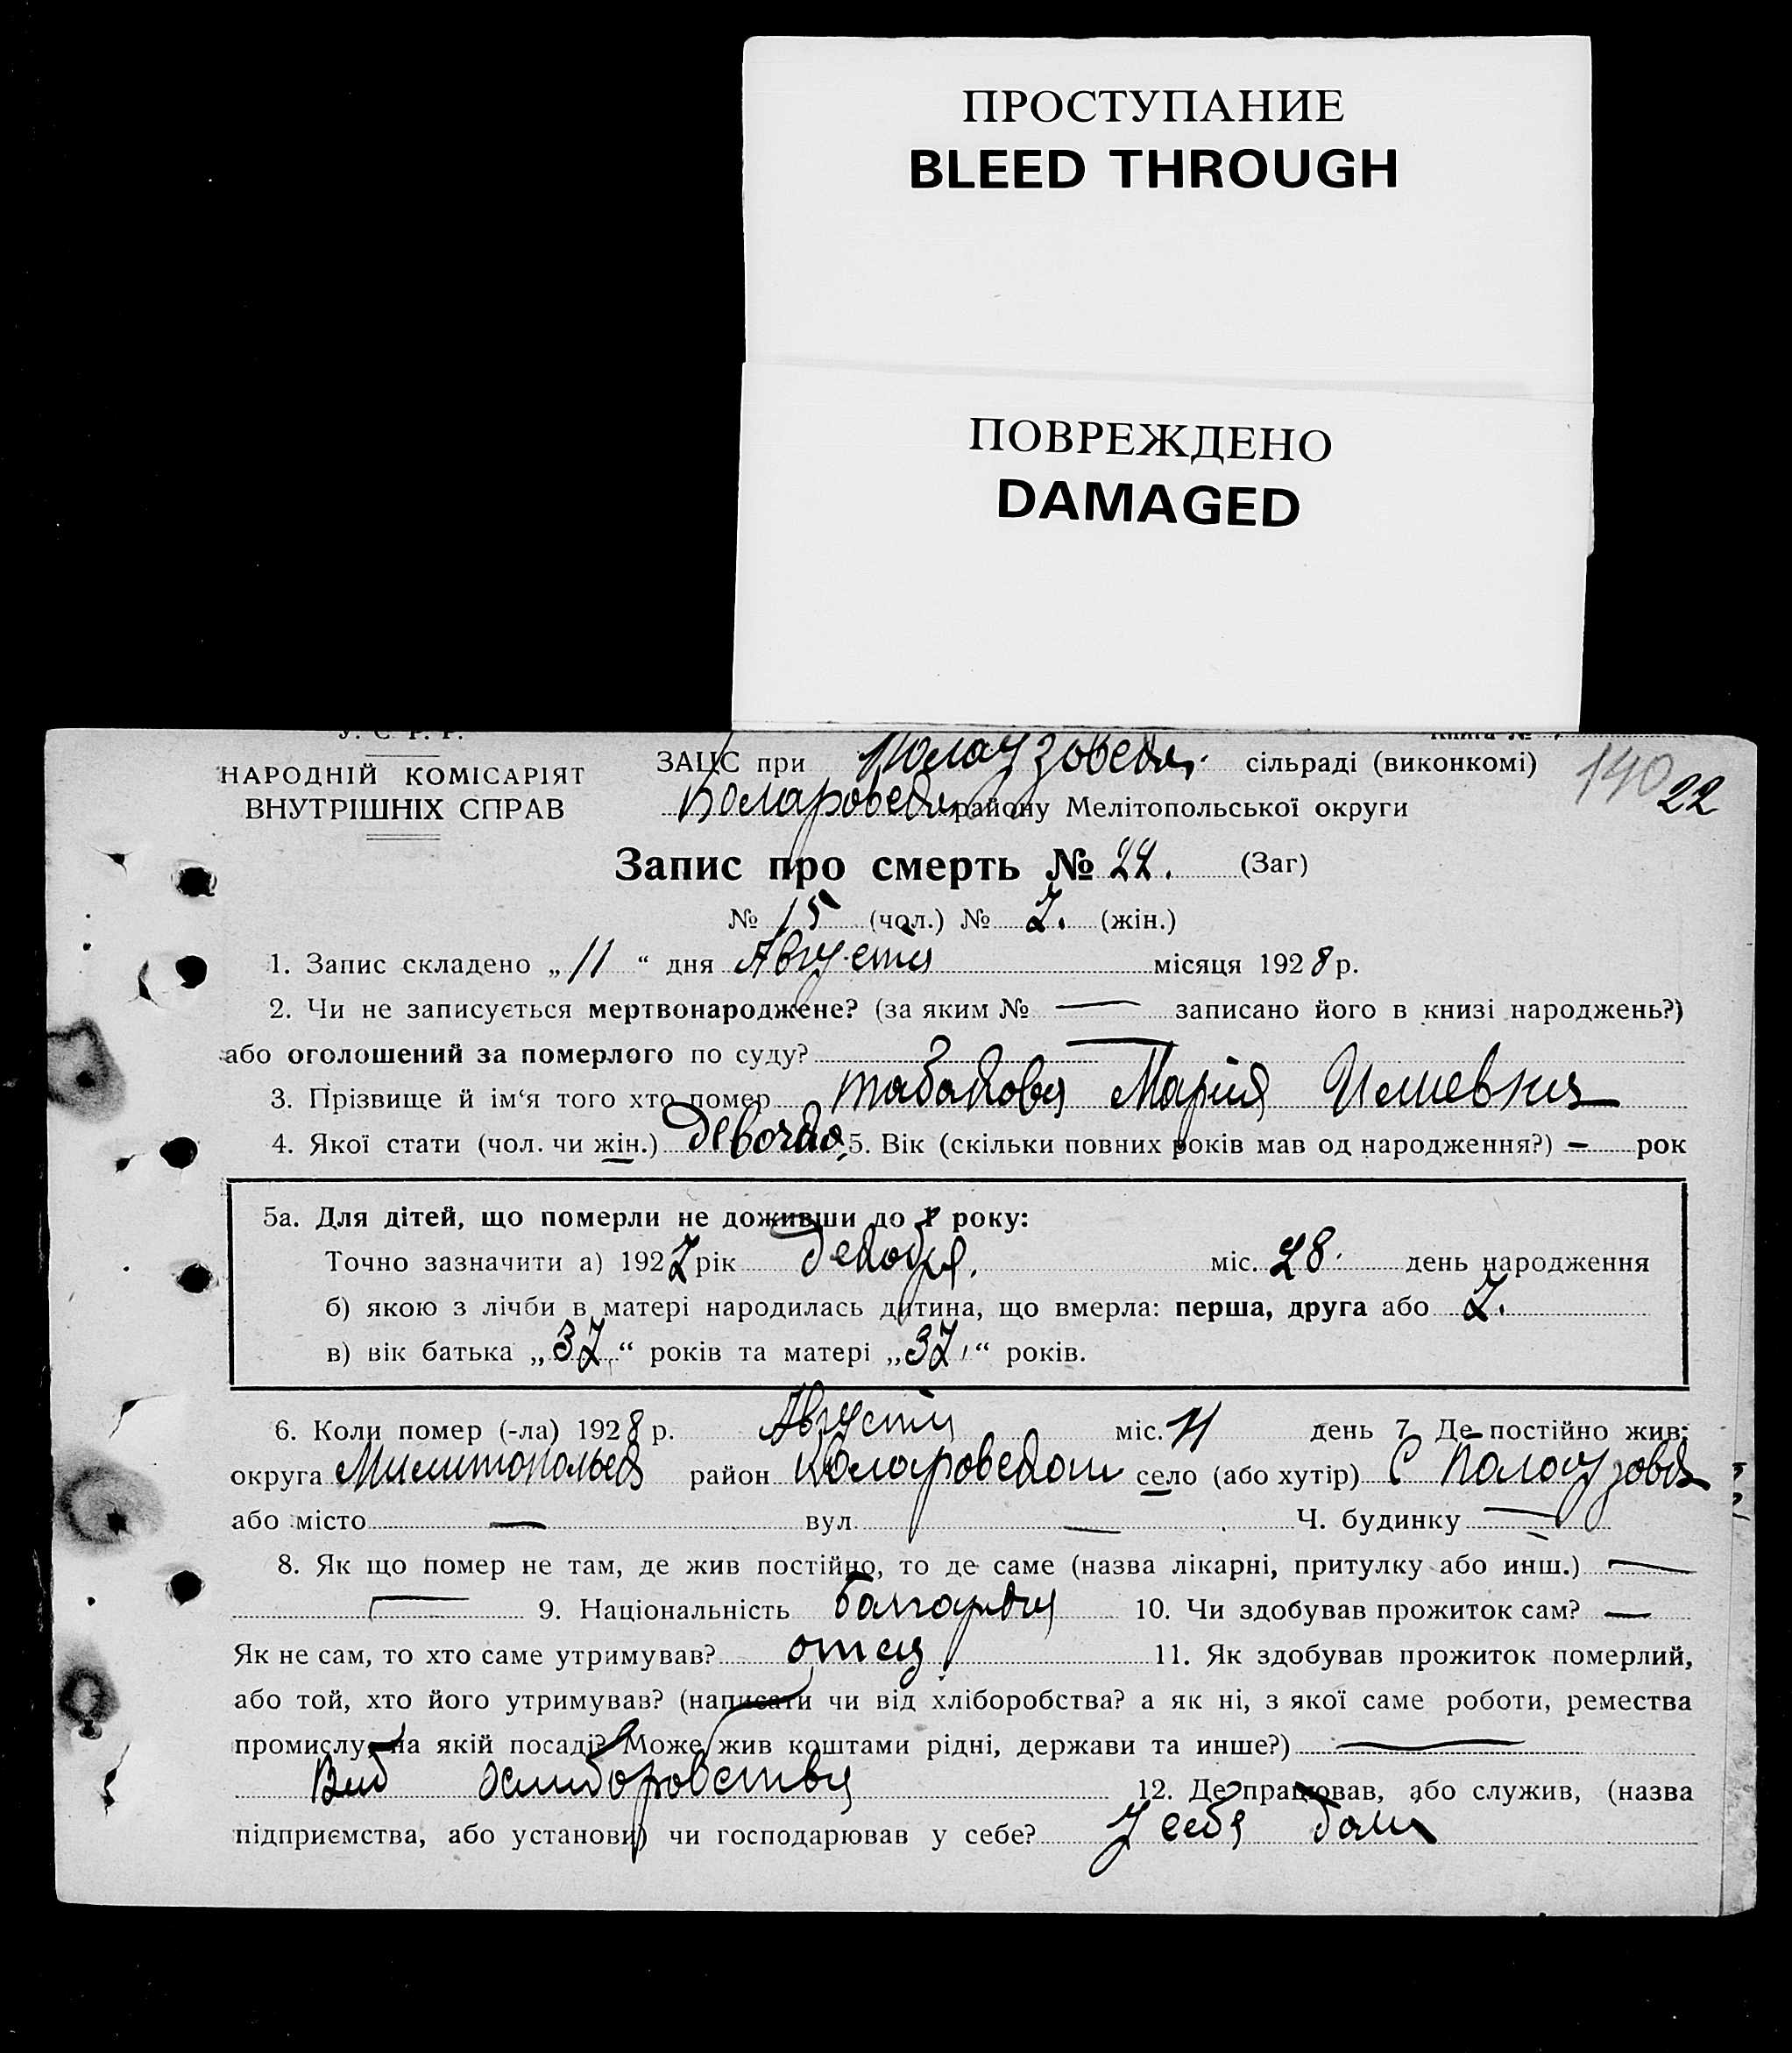 ПРОСТУПАНИЕ
BLEED THROUGH
ПОВРЕЖДЕНО
DAMAGED
У. С. Р. Р.
НАРОДНІЙ КОМІСАРІЯТ
ВНУТРІШНІХ СПРАВ
ЗАЦС при сільраді (виконкомі)
району Мелітопольської округи
140 22
Запис про смерть № 22. (Заг)
№ 15 (чол.) № 7. (жін.)
1. Запис складено „ 11 “ дня Августа місяця 1928 р.
2. Чи не записується мертвонароджене? (за яким № — записано його в книзі народжень?)
або оголошений за померлого по суду? —
3. Прізвище й ім‘я того хто помер Табакова Мария
4. Якої стати (чол. чи жін.) девочка 5. Вік (скільки повних років мав од народження?) — рок
5а. Для дітей, що померли не доживши до 1 року:
Точно зазначити а) 1927 рік декабря. міс. 28. день народження
б) якою з лічби в матері народилась дитина, що вмерла: перша, друга або 7.
в) вік батька „ 37 “ років та матері „ 37 “ років.
6. Коли помер (-ла) 1928 р. Августа міс. 11 день 7. Де постійно жив:
округа район село (або хутір) С
або місто — вул. — Ч. будинку —
8. Як що помер не там, де жив постійно, то де саме (назва лікарні, притулку або инш.) —
— 9. Національність болгарка 10. Чи здобував прожиток сам? —
Як не сам, то хто саме утримував? отец 11. Як здобував прожиток померлий,
або той, хто його утримував? (написати чи від хліборобства? а як ні, з якої саме роботи, ремества
промислу, на якій посаді? Може жив коштами рідні, держави та инше?) —
12. Де працював, або служив, (назва
підприємства, або установи) чи господарював у себе? У себя дома